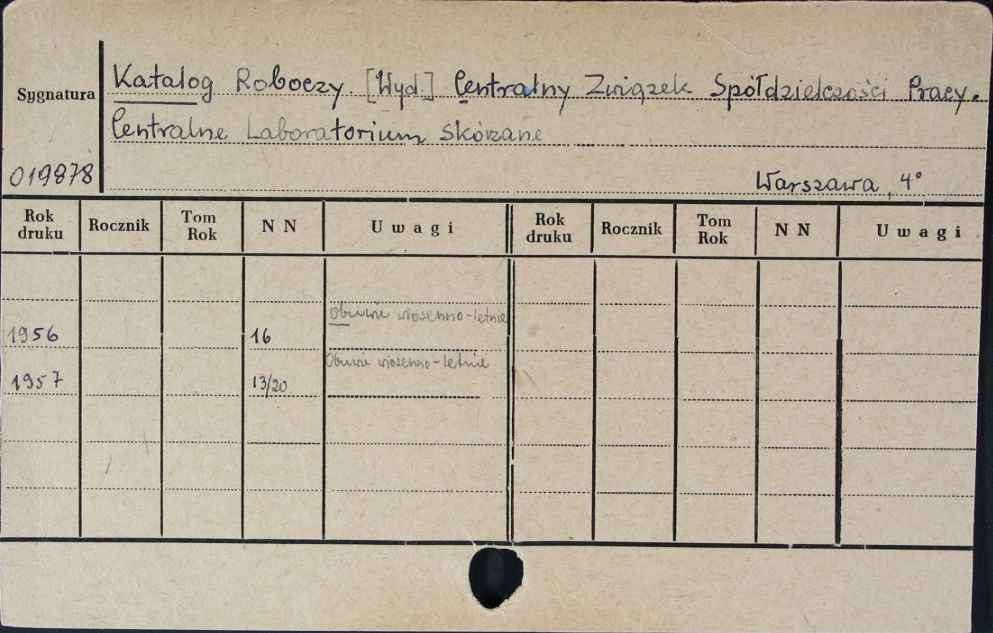 Sygnatura
Katalog Roboczy [Wyd.] Centralny Związek Spółdzielczości Pracy.
Centralne Laboratorium Skórzane
019878
Warszawa, 4°
Rok druku Rocznik Tom Rok N N Uwagi Rok druku Rocznik Tom Rok N N Uwagi
Obuwie wiosenno-letnie
1956 16
Obuwie wiosenno-letnie
1957 13/20